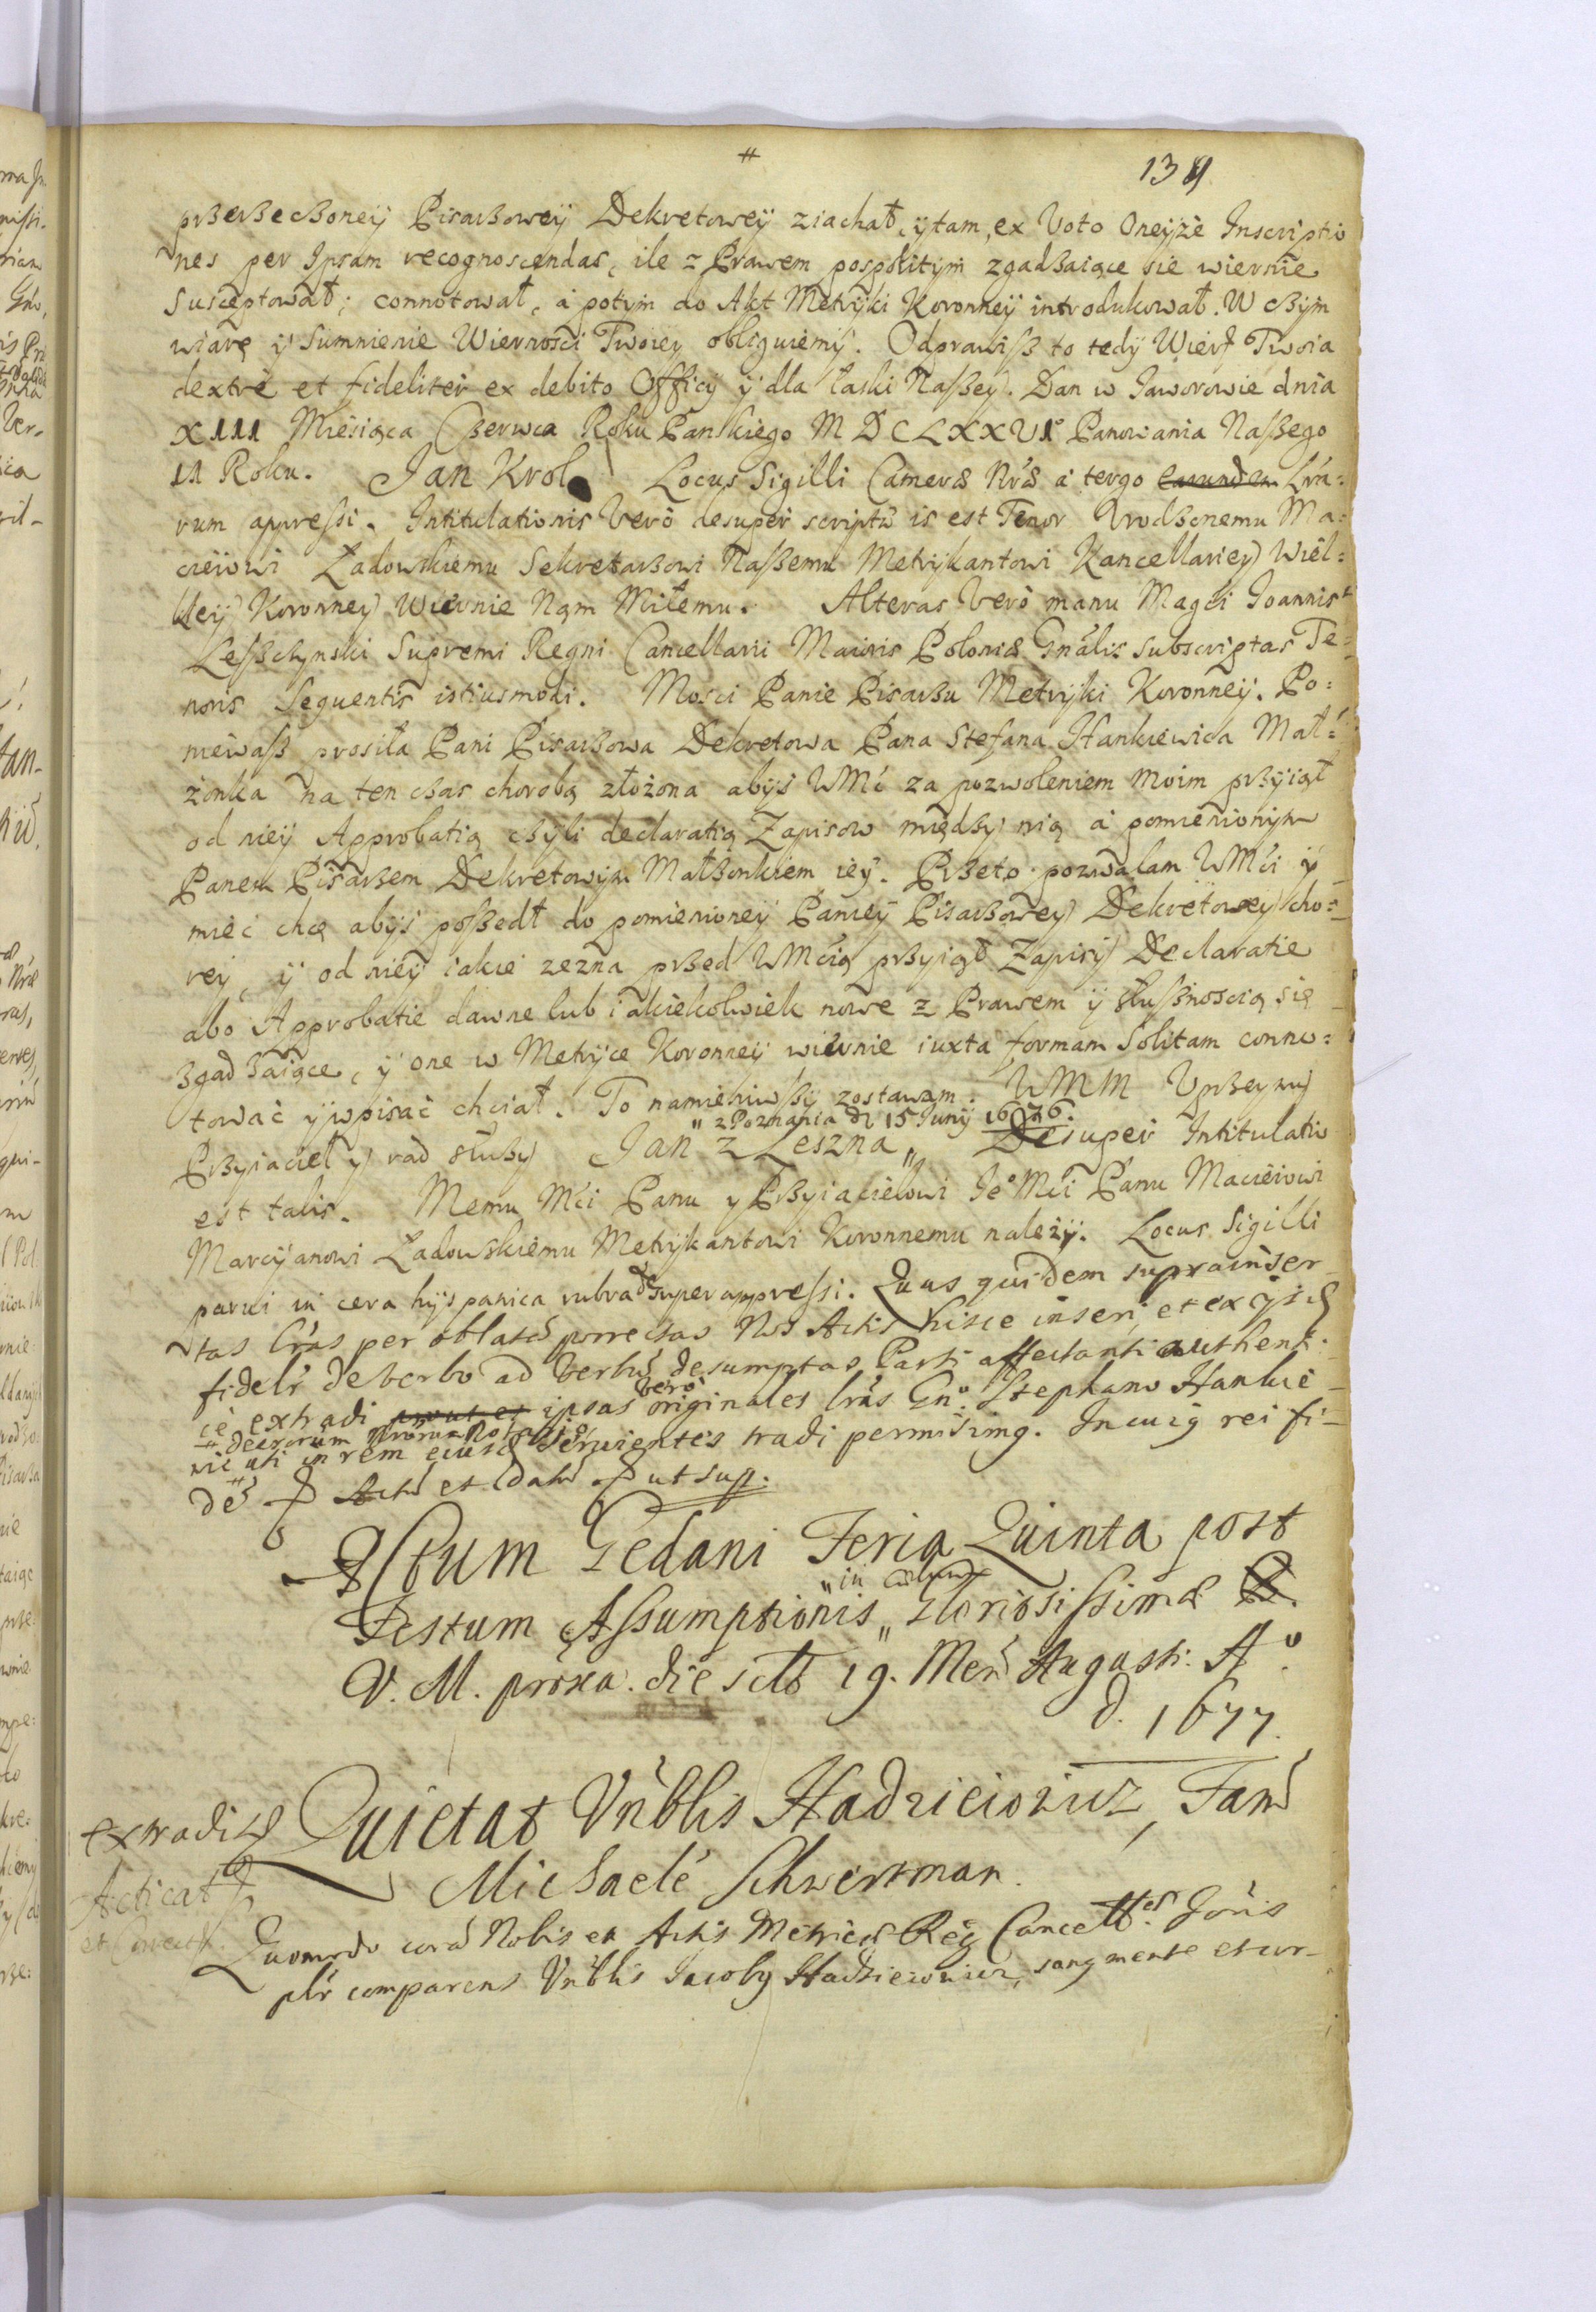 139
przerzeczoneÿ Pisarzoweÿ Dekretoweÿ ziachał, ÿ tam, ex Voto Oneÿże Inscriptio
nes per Ipsam recognoscendas, ile z Prawem pospolitÿm zgadzaiące się wiernie
susceptował; connotował, á potÿm do Akt Metrÿki Koronneÿ introdukował. W czÿm
wiarę ÿ Sumnienie Wiernosci Twoiey obliguiemÿ. Odprawisz to tedÿ Wiert Twoia
dextrè et fideliter ex debito Officÿ ÿ dla łaski Naszeÿ. Dan w Jaworowie dnia
XIII Miesiąca Czerwca Roku Panskiego MDCLXXVI° Panowania Naszego
II Roku. Jan Krol Locus Sigilli Cameræ Nræ á tergo earundem Lrá:
rum appressi. Intitulationis Verò desuper scriptæ is est Tenor Vrodzonemu Ma:
cieiowi Ładowskiemu Sekretarzowi Naszemu Metrÿkantowi Kancellarieÿ Wiel:
kieÿ Koronneÿ Wiernie Nąm Miłemu. Alteras Verò manu Magci Joannis
Leszczynski Supremi Regni Cancellarii Maioris Poloniæ Gnális subscriptas Te:
noris Sequentis istiusmodi. Mosci Panie Pisarzu Metrÿki Koronneÿ. Po:
niewasz prosiła Pani Pisarzowa Dekretowa Pana Stefana Hankiewicza Mał:
żonka na ten czas chorobą złożona abÿs WMć za pozwoleniem moim przÿiął
od nieÿ Approbatią czÿli declaratią Zapisow międzÿ nią á pomienionÿm
Panem Pisarzem Dekretowÿm Małżonkiem ieÿ. Przeto pozwalam WMći ÿ
mieć chcę abÿś poszedł do pomienioneÿ Panieÿ Pisarzoweÿ Dekretoweÿ cho:
reÿ, ÿ od nieÿ iakie zezna przed WMcią przÿiął Zapisÿ Declaratie
abo Approbatie dawne lub iakiekolwiek nowe z Prawem ÿ słusznoscią się
zgadzaiące, ÿ one w Metrÿce Koronneÿ wiernie iuxta formam Solitam conno:
tować ÿ wpisać chciał. To namieniwszÿ zostawam. WMM Vprzeymÿ
„ z Poznania D 15 Junÿ 1676.
Przÿiaciel ÿ rad służÿ Jan z Leszna „ Desuper Intitulatio
est talis. Memu Mći Panu y Przÿiacielowi Je° Mći Panu Macieiowi
Marcÿanowi Ładowskiemu Metrÿkantowi Koronnemu należÿ. Locus Sigilli
parvi in cera hÿspanica rubra desuper appressi. Quas quidem suprainser
tas Lrás per oblatã porrectas Nos Actis hisce inseri, et ex ijsd
fidelr de verbo ad verbũ desumptas Parti affectanti authenti
cè extradi prout et ipsas verò originales lrás Gno Stephano Hankie
wic uti in rem eiusd servientes tradi permisimg. In cuig rei fi
dẽ Actũ et Datũ ut sup.
Actum Gedani Feria Quinta post
Festum Assumptionis „ in cælum „ Gloriosissimæ B.
V. M. proxa. die sctt 19. Men Augusti. A°
d. 1677.
extradit
Quietat Vnblis Hadzieiowicz, Fam
Michaelẽ Schwertman.
Acticat
et Correct.
Quomodo corã Nobis et Actis Metrices Reg Cancellrs Joris
plr comparens Vnblis Jacobg Hadzieiowicz, sang mente et cor